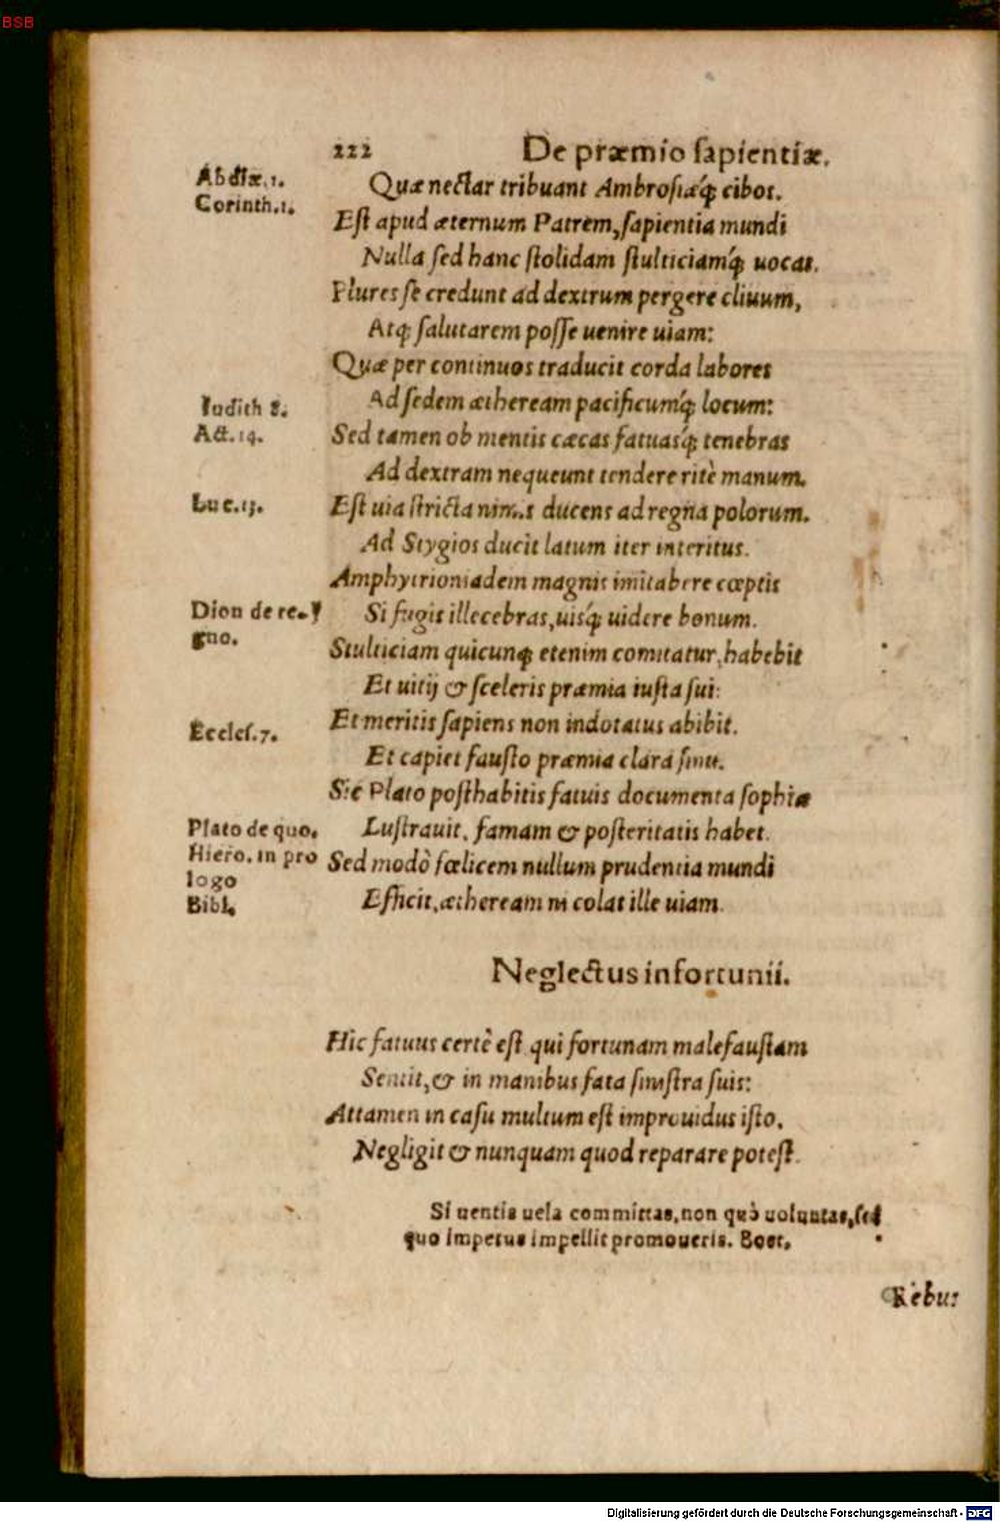 BSB
222 De præmio sapientiæ.
Abdiæ.1.
Corinth.1.
Quæ nectar tribuant Ambrosiæq́; cibos.
Est apud æternum Patrem, sapientia mundi
Nulla sed hanc stolidam stulticiamq́; uocat.
Plures se credunt ad dextrum pergere cliuum,
Atq; salutarem posse uenire uiam:
Quæ per continuos traducit corda labores
Ad sedem ætheream pacificumq́; locum:
Iudith 8.
Act.14.
Sed tamen ob mentis cæcas fatuasq́; tenebras
Ad dextram nequeunt tendere ritè manum.
Luc.13.
Est uia stricta nimis ducens ad regna polorum.
Ad Stygios ducit latum iter interitus.
Amphytrioniadem magnis imitabere cœptis
Dion de re-
gno.
Si fugis illecebras, uisq́; uidere bonum.
Stulticiam quicunq; etenim comitatur, habebit
Et uitij & sceleris præmia iusta sui:
Eccles.7.
Et meritis sapiens non indotatus abibit.
Et capiet fausto præmia clara sinu.
Sic Plato posthabitis fatuis documenta sophiæ
Plato de quo.
Hiero. in pro
logo
Bibl.
Lustrauit, famam & posteritatis habet.
Sed modò fœlicem nullum prudentia mundi
Efficit, ætheream ni colat ille uiam.
Neglectus infortunii.
Hic fatuus certè est qui fortunam malefaustam
Sentit, & in manibus fata sinistra suis:
Attamen in casu multum est improuidus isto,
Negligit & nunquam quod reparare potest.
Si uentis uela committas, non quò uoluntas, sed
quo impetus impellit promoueris. Boet.
Rebus
Digitalisierung gefördert durch die Deutsche Forschungsgemeinschaft - DFG